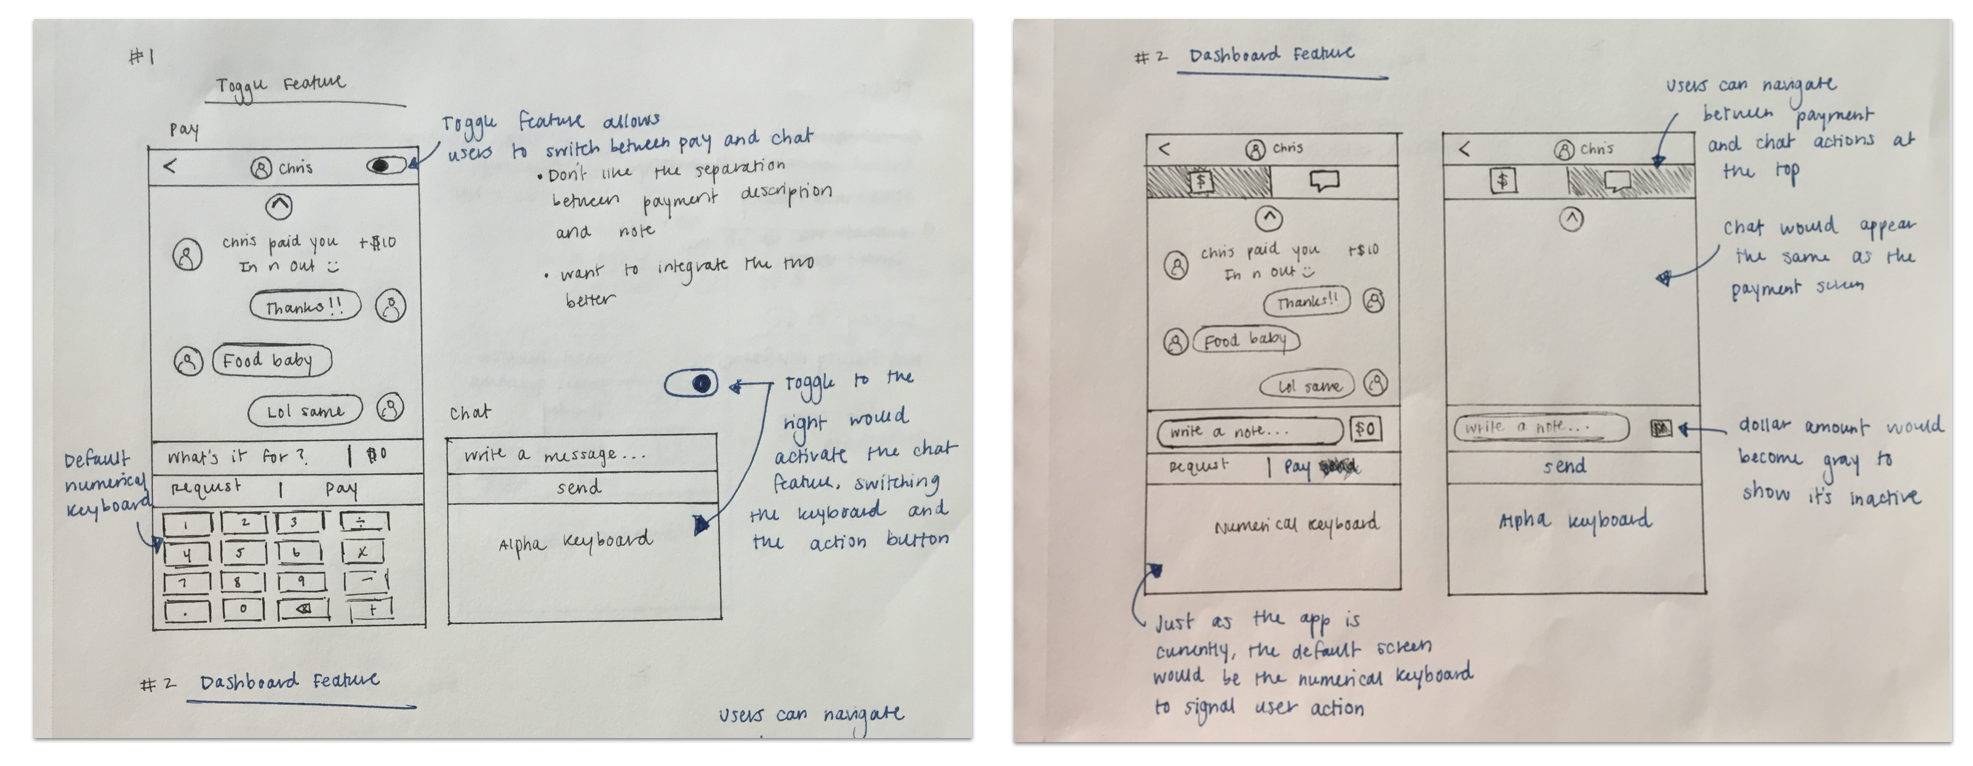 #1
Toggle Feature
Pay
< Chris
Chris paid you +$10
In n out
Thanks!!
Food baby
Lol same
What's it for? | $0
Request | Pay
1 2 3 ÷
4 5 6 x
7 8 9 -
. 0 +
Default
numerical
keyboard
Toggle feature allows
users to switch between pay and chat
• Don't like the separation
between payment description
and note
• want to integrate the two
better
Chat
Write a message...
send
Alpha keyboard
Toggle to the
right would
activate the chat
feature, switching
the keyboard and
the action button
#2 Dashboard Feature
users can navigate
#2 Dashboard Feature
< Chris
$
Chris paid you +$10
In n out
Thanks!!
Food baby
Lol same
write a note... $0
Request | Pay
Numerical keyboard
Just as the app is
currently, the default screen
would be the numerical keyboard
to signal user action
< Chris
$
write a note...
send
Alpha keyboard
users can navigate
between payment
and chat actions at
the top
Chat would appear
the same as the
payment screen
dollar amount would
become gray to
show it's inactive